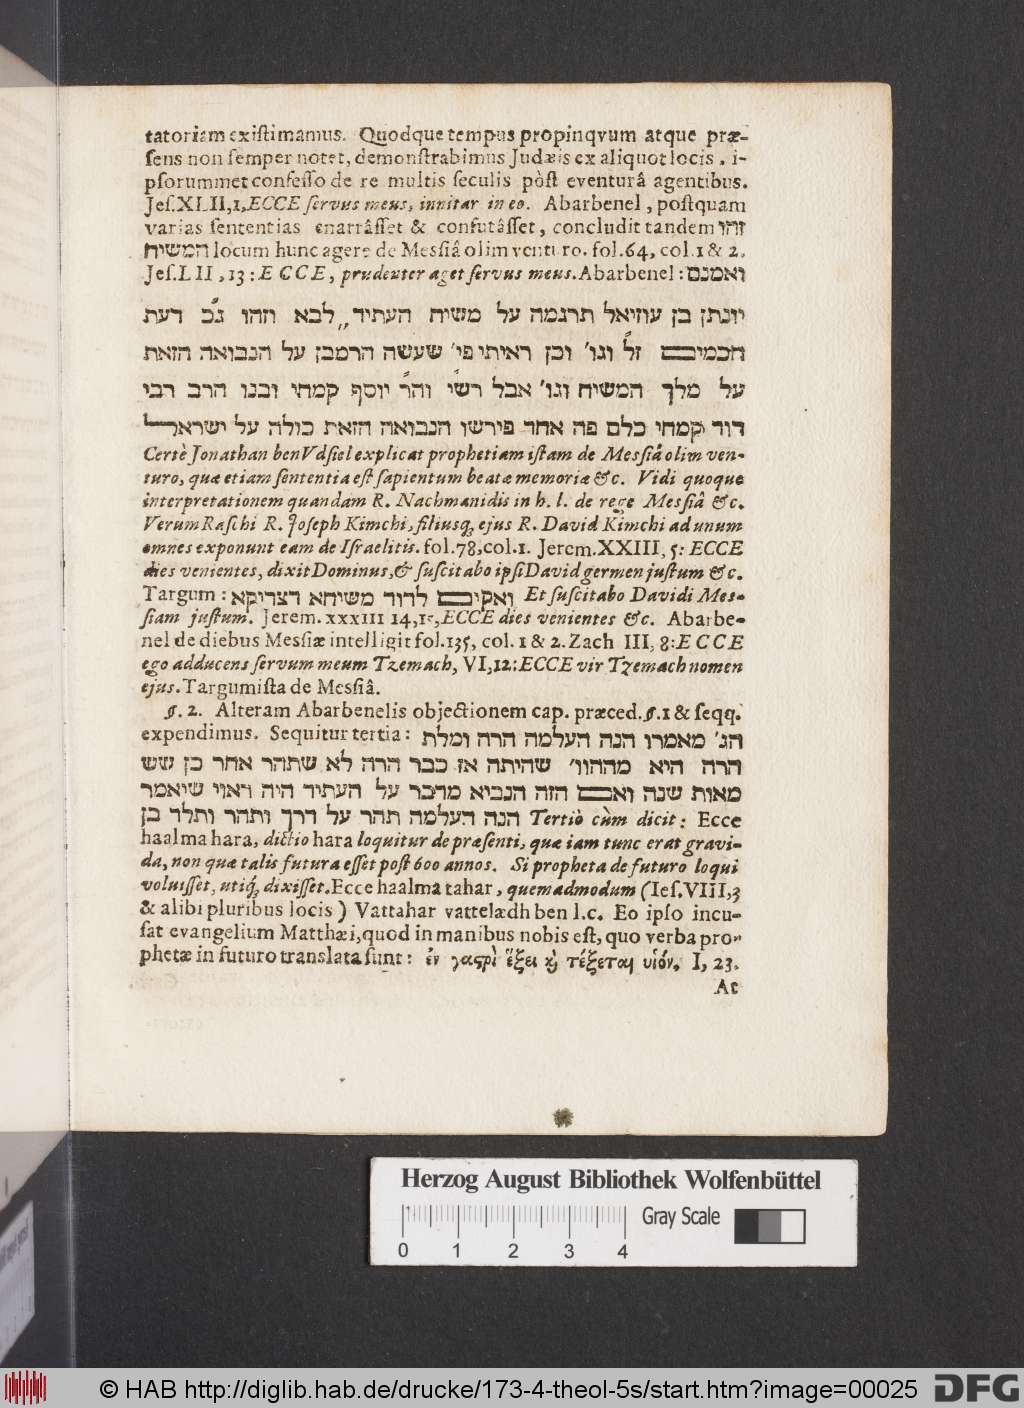 tatoriam existimamus. Quodque tempus propinqvum atque præ-
sens non semper notet, demonstrabimus Judæis ex aliquot locis. i-
psorummet confesso de re multis seculis pòst eventurâ agentibus.
Jes.XLII,1,ECCE servus meus, innitar in eo. Abarbenel, postquam
varias sententias enarrâsset & confutâsset, concludit tandem זהו
המשיח locum hunc agere de Messiâ olim venturo. fol.64, col.1 & 2.
Jes.LII, 13: ECCE, prudenter aget servus meus. Abarbenel: ואמנם
יונתן בן עוזיאל תרגמה על משיח העתיד ,, לבא וזהו ג"כ דעת
חכמים ז"ל וגו' וכן ראיתי פי' שעשה הרמבן על הנבואה הזאת
על מלך המשיח וגו' אבל רש"י והר"ר יוסף קמחי ובנו הרב רבי
דוד קמחי כלם פה אחד פירשו הנבואה הזאת כולה על ישראל
Certè Jonathan ben Vdsiel explicat prophetiam istam de Messiâ olim ven-
turo, quæ etiam sententia est sapientum beatæ memoriæ &c. Vidi quoque
interpretationem quandam R. Nachmanidis in h. l. de rege Messiâ &c.
Verum Raschi R. Joseph Kimchi, filiusq; ejus R. David Kimchi ad unum
omnes exponunt eam de Israelitis. fol.78,col.1. Jerem.XXIII, 5: ECCE
dies venientes, dixit Dominus, & suscitabo ipsi David germen justum &c.
Targum: ואקים לדוד משיחא דצדיקא Et suscitabo Davidi Mes-
siam justum. Jerem. xxxiii 14,15, ECCE dies venientes &c. Abarbe-
nel de diebus Messiæ intelligit fol.135, col. 1 & 2. Zach III, 8: ECCE
ego adducens servum meum Tzemach, VI,12: ECCE vir Tzemach nomen
ejus. Targumista de Messiâ.
§. 2. Alteram Abarbenelis objectionem cap. præced. §.1 & seqq.
expendimus. Sequitur tertia: הג' מאמרו הנה העלמה הרה ומלת
הרה היא מההוו' שהיתה אז כבר הרה לא שתהר אחר כן שש
מאות שנה ואם הזה הנביא מדבר על העתיד היה ראוי שיאמר
הנה העלמה תהר על דרך ותהר ותלד בן Tertiò cùm dicit: Ecce
haalma hara, dictio hara loquitur de præsenti, quæ iam tunc erat gravi-
da, non quæ talis futura esset post 600 annos. Si propheta de futuro loqui
voluisset, utiq; dixisset. Ecce haalma tahar, quemadmodum (Ies. VIII,3
& alibi pluribus locis) Vattahar vattelædh ben l.c. Eo ipso incu-
sat evangelium Matthæi, quod in manibus nobis est, quo verba pro-
phetæ in futuro translata sunt: ἐν γαστρὶ ἕξει καὶ τέξεται υἱόν. I, 23.
At
Herzog August Bibliothek Wolfenbüttel
Gray Scale
0 1 2 3 4
© HAB http://diglib.hab.de/drucke/173-4-theol-5s/start.htm?image=00025
DFG